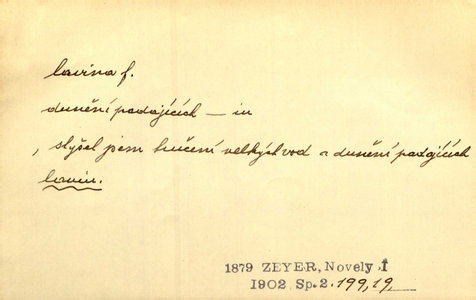 lavina f.
dunění padajících — in
, slyšel jsem hučení velkých vod a dunění padajících
lavin.
1879 ZEYER, Novely I
1902 Sp. 2. 199, 19